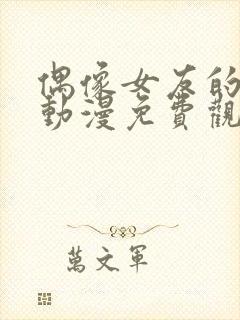 偶像女友的
動漫免費觀
萬文軍